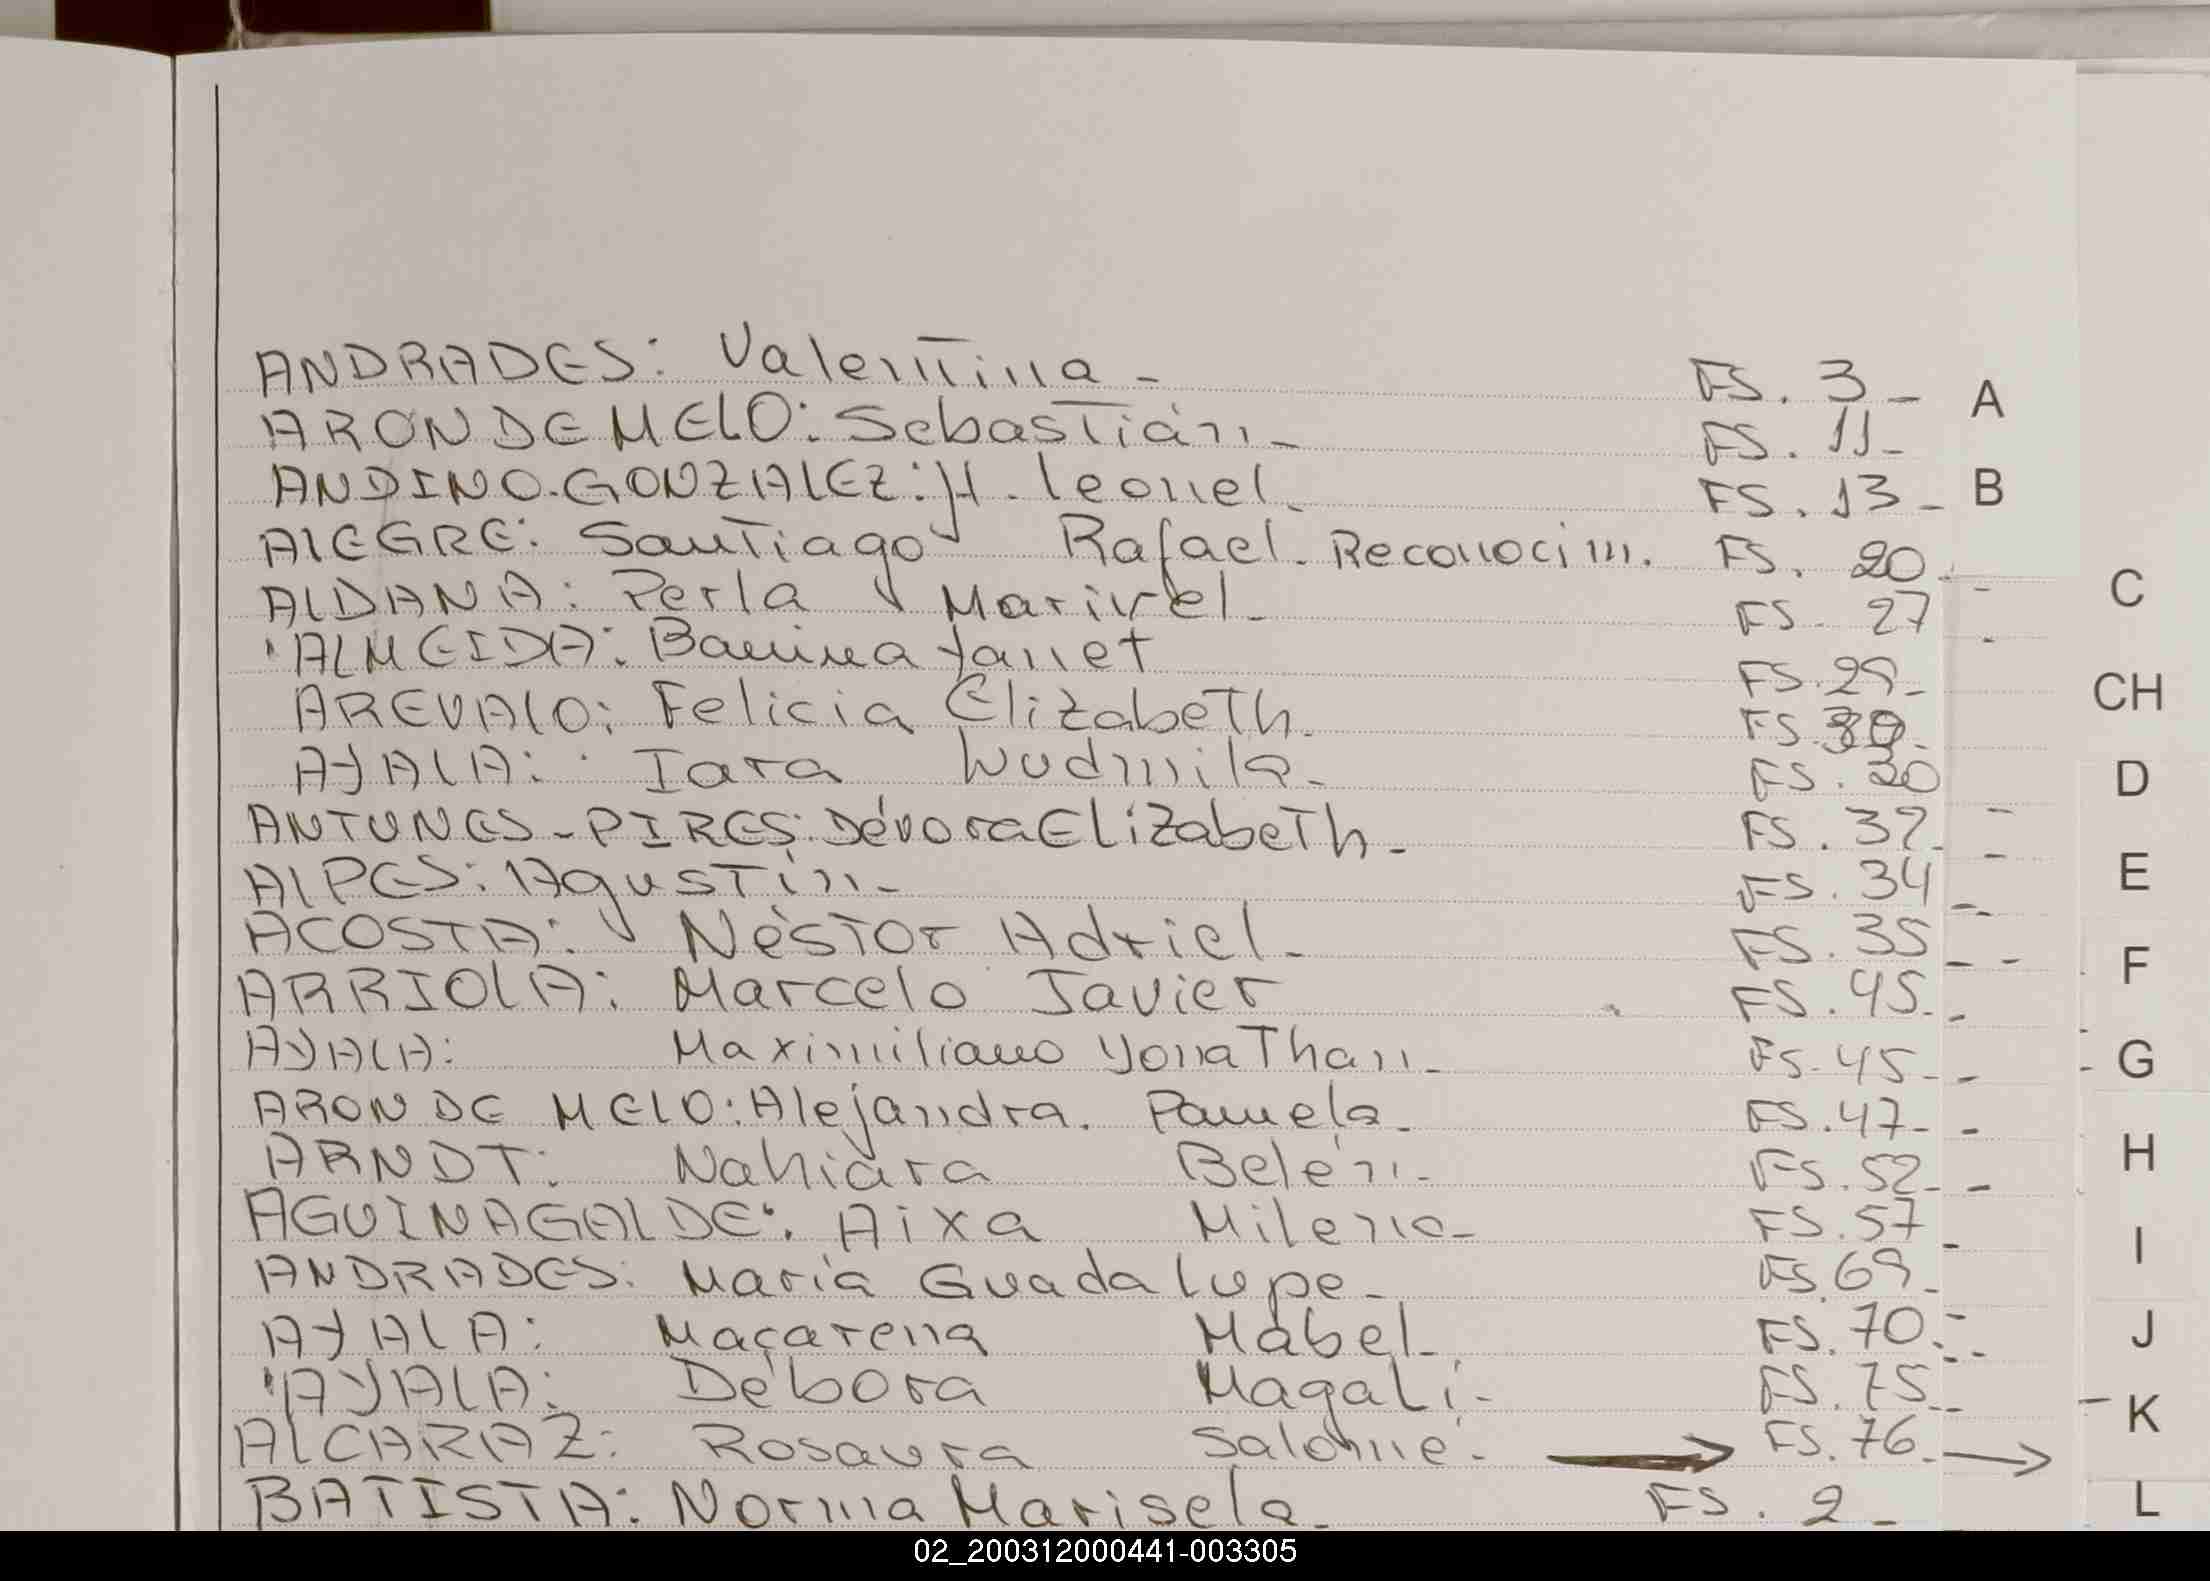 ANDRADES: Valentina - FS. 3 -
ARON DE MELO: Sebastián - FS. 11 -
ANDINO. GONZALEZ: H. Leonel. FS. 13 -
ALEGRE: Santiago Rafael. Reconocim. FS. 20 -
ALDANA: Perla Marivel - FS. 27 -
ALMEIDA: Banina Yanet FS. 29 -
AREVALO: Felicia Elizabeth. FS. 30 -
AYALA: Iara Wudmila - FS. 30
ANTUNES - PIRES: Dévora Elizabeth - FS. 32 -
ALPES: Agustín - FS. 34 -
ACOSTA: Néstor Adriel - FS. 35 -
ARRIOLA: Marcelo Javier FS. 45 -
AYALA: Maximiliano Yonathan - FS. 45 -
ARON DE MELO: Alejandra. Pamela - FS. 47 -
ARNDT: Nahiara Belén - FS. 52 -
AGUINAGALDE: Aixa Milena - FS. 57 -
ANDRADES: María Guadalupe - FS. 69 -
AYALA: Macarena Mabel - FS. 70 -
AYALA: Débora Magalí - FS. 75 -
ALCARAZ: Rosaura Salomé - → FS. 76 - →
BATISTA: Norma Marisela - FS. 2 -
A
B
C
CH
D
E
F
G
H
I
J
K
L
02_200312000441-003305